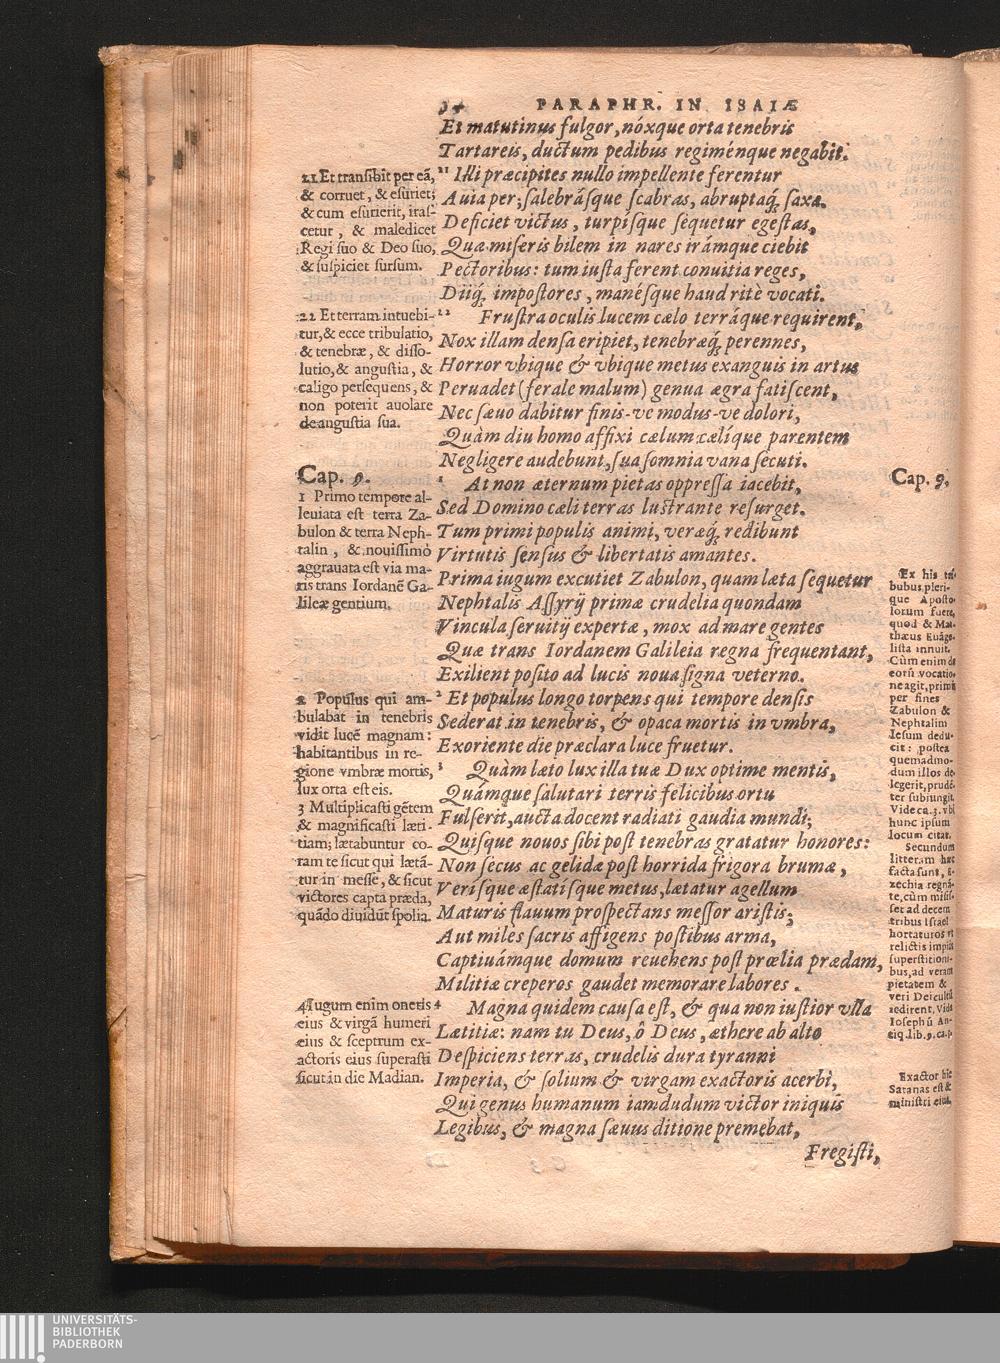 34 PARAPHR. IN ISAIÆ
Et matutinus fulgor, nóxque orta tenebris
Tartareis, ductum pedibus regiménque negabit.
21 Illi præcipites nullo impellente ferentur
Auia per; salebrásque scabras, abruptaq́; saxa.
Deficiet victus, turpísque sequetur egestas,
Quæ miseris bilem in nares irámque ciebit
Pectoribus: tum iusta ferent conuitia reges,
Diiq́; impostores, manésque haud ritè vocati.
22 Frustra oculis lucem cælo terráque requirent,
Nox illam densa eripiet, tenebræq́; perennes,
Horror vbique & vbique metus exanguis in artus
Peruadet (ferale malum) genua ægra fatiscent,
Nec sæuo dabitur finis-ve modus-ve dolori,
Quàm diu homo affixi cælum cælíque parentem
Negligere audebunt, sua somnia vana secuti.
1 At non æternum pietas oppressa iacebit,
Sed Domino cæli terras lustrante resurget.
Tum primi populis animi, veræq́; redibunt
Virtutis sensus & libertatis amantes.
Prima iugum excutiet Zabulon, quam læta sequetur
Nephtalis Assyrij primæ crudelia quondam
Vincula seruitij expertæ, mox ad mare gentes
Quæ trans Iordanem Galileia regna frequentant,
Exilient posito ad lucis noua signa veterno.
2 Et populus longo torpens qui tempore densis
Sederat in tenebris, & opaca mortis in vmbra,
Exoriente die præclara luce fruetur.
3 Quàm læto lux illa tuæ Dux optime mentis,
Quámque salutari terris felicibus ortu
Fulserit, aucta docent radiati gaudia mundi;
Quisque nouos sibi post tenebras gratatur honores:
Non secus ac gelidæ post horrida frigora brumæ,
Verisque æstatísque metus, lætatur agellum
Maturis flauum prospectans messor aristis;
Aut miles sacris affigens postibus arma,
Captiuámque domum reuehens post prœlia prædam,
Militiæ creperos gaudet memorare labores.
4 Magna quidem causa est, & qua non iustior vlla
Lætitiæ: nam tu Deus, ô Deus, æthere ab alto
Despiciens terras, crudelis dura tyranni
Imperia, & solium & virgam exactoris acerbi,
Qui genus humanum iamdudum victor iniquis
Legibus, & magna sæuus ditione premebat,
Fregisti,
21 Et transibit per eã,
& corruet, & esuriet;
& cum esurierit, iras-
cetur, & maledicet
Regi suo & Deo suo,
& suspiciet sursum.
22 Et terram intuebi-
tur, & ecce tribulatio,
& tenebræ, & disso-
lutio, & angustia, &
caligo persequens, &
non poterit auolare
de angustia sua.
Cap. 9.
1 Primo tempore al-
leuiata est terra Za-
bulon & terra Neph-
talin, & nouissimò
aggrauata est via ma-
ris trans Iordanẽ Ga-
lileæ gentium.
2 Populus qui am-
bulabat in tenebris
vidit lucẽ magnam:
habitantibus in re-
gione vmbræ mortis,
lux orta est eis.
3 Multiplicasti gẽtem
& magnificasti læti-
tiam; lætabuntur co-
ram te sicut qui lætã-
tur in messe, & sicut
victores capta præda,
quãdo diuidũt spolia.
4 Iugum enim oneris
eius & virgã humeri
eius & sceptrum ex-
actoris eius superasti
sicut in die Madian.
Cap. 9.
Ex his tri-
bubus pleri-
que Aposto-
lorum fuere,
quod & Mat-
thæus Euãge-
lista innuit.
Cùm enim de
eorũ vocatio-
ne agit, primùm
per fines
Zabulon &
Nephtalim
Iesum dedu-
cit: postea
quemadmo-
dum illos de-
legerit, prudẽ-
ter subiungit.
Vide ca. 3. vbi
hunc ipsum
locum citat.
Secundum
litteram hæc
facta sunt, E-
zechia regnã-
te, cùm misis-
set ad decem
tribus Israel
hortaturos vt
relictis impiis
superstitioni-
bus, ad veram
pietatem &
veri Dei cultũ
redirent. Vide
Iosephũ An-
tiq. lib. 9. ca. p.
Exactor hic
Satanas est &
ministri eius.
UNIVERSITÄTS-
BIBLIOTHEK
PADERBORN